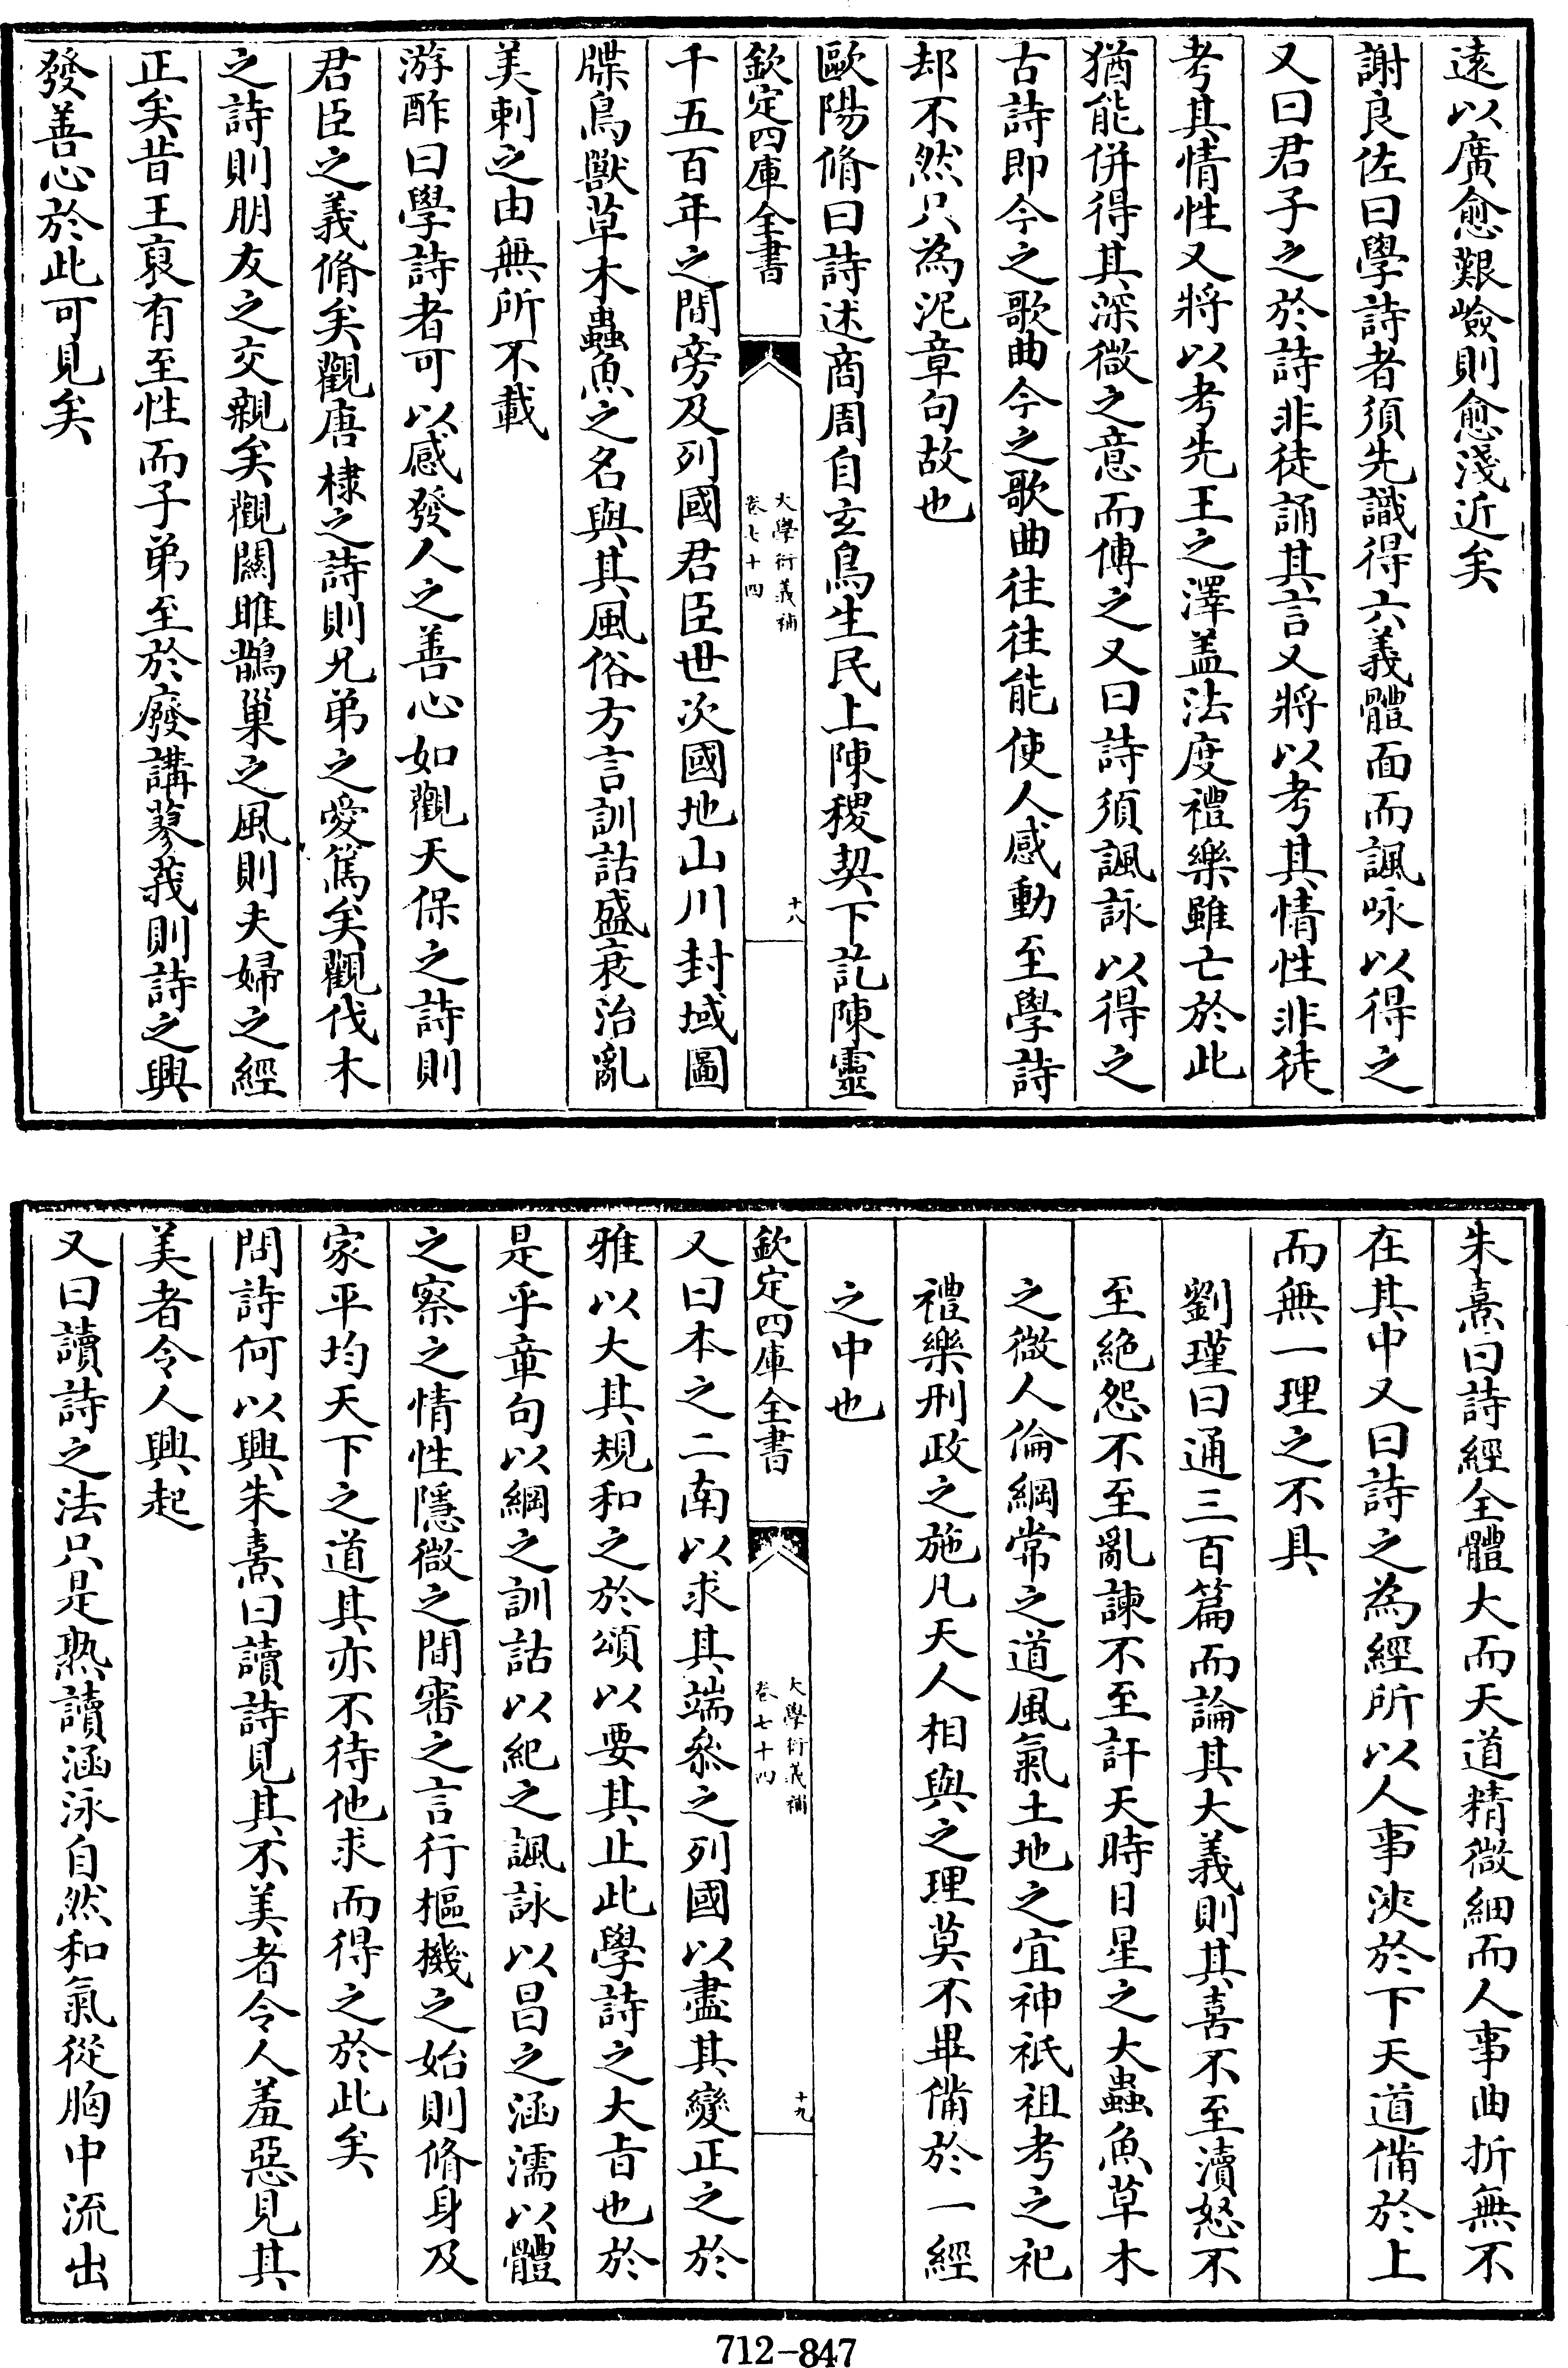 遠以廣愈艱嶮則愈淺近矣
謝良佐曰學詩者須先識得六義體面而諷咏以得之
又曰君子之於詩非徒誦其言又將以考其情性非徒
考其情性又將以考先王之澤盖法度禮樂雖亡於此
猶能併得其深微之意而傳之又曰詩須諷詠以得之
古詩即今之歌曲今之歌曲往往能使人感動至學詩
却不然只為泥章句故也
歐陽脩曰詩述商周自玄鳥生民上陳稷契下訖陳靈
欽定四庫全書
大學衍義補
卷七十四
十八
千五百年之間旁及列國君臣世次國地山川封域圖
牒鳥獸草木蟲魚之名與其風俗方言訓詁盛衰治亂
美刺之由無所不載
游酢曰學詩者可以感發人之善心如觀天保之詩則
君臣之義脩矣觀唐棣之詩則兄弟之愛篤矣觀伐木
之詩則朋友之交親矣觀關雎鵲巢之風則夫婦之經
正矣昔王裒有至性而子弟至於廢講蓼莪則詩之興
發善心於此可見矣
朱熹曰詩經全體大而天道精微細而人事曲折無不
在其中又曰詩之為經所以人事浹於下天道備於上
而無一理之不具
劉瑾曰通三百篇而論其大義則其喜不至瀆怒不
至絶怨不至亂諫不至訐天時日星之大蟲魚草木
之微人倫綱常之道風氣土地之宜神祇祖考之祀
禮樂刑政之施凡天人相與之理莫不畢備於一經
之中也
欽定四庫全書
大學衍義補
卷七十四
十九
又曰本之二南以求其端叅之列國以盡其變正之於
雅以大其規和之於頌以要其止此學詩之大旨也於
是乎章句以綱之訓詁以紀之諷詠以昌之涵濡以體
之察之情性隱微之間審之言行樞機之始則脩身及
家平均天下之道其亦不待他求而得之於此矣
問詩何以興朱熹曰讀詩見其不美者令人羞惡見其
美者令人興起
又曰讀詩之法只是熟讀涵泳自然和氣從胸中流出
712-847